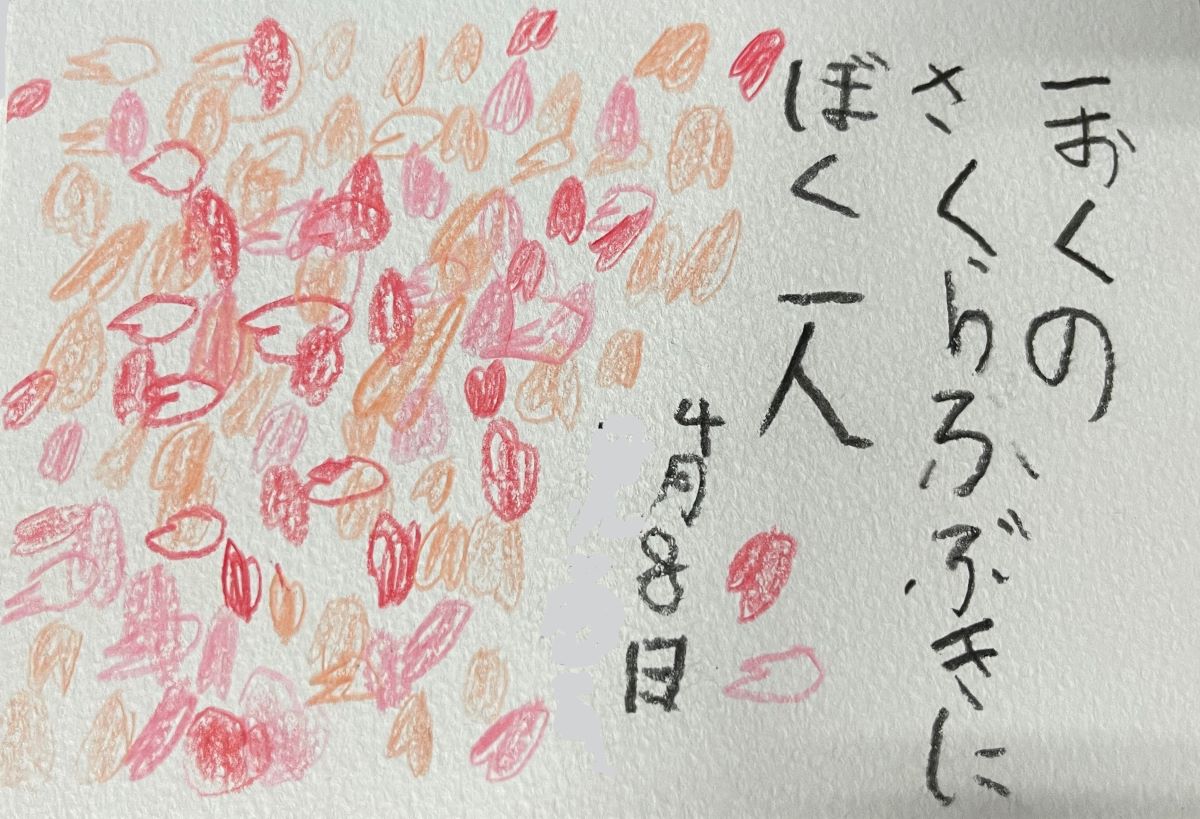 一おくの
さくらふぶきに
ぼく一人
4月8日